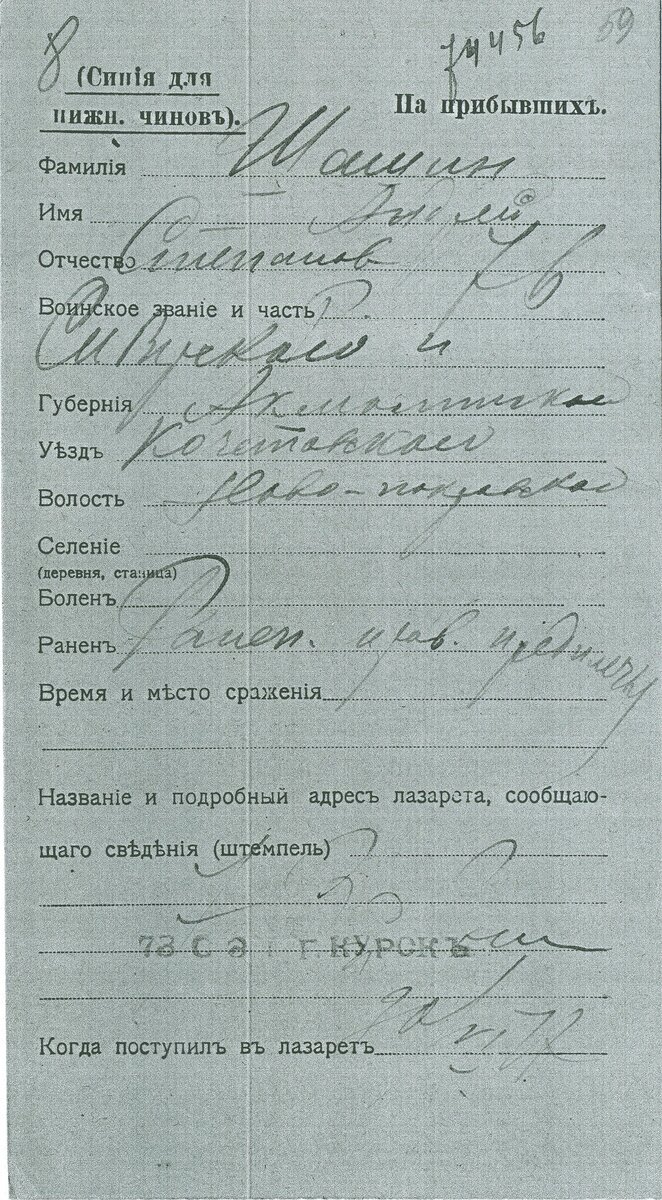 8
74456 59
(Синія для
нижн. чиновъ).
На прибывшихъ.
Фамилія Шашин
Имя
Отчество Степанов 76
Воинское званіе и часть Р.
Губернія Акмолинской
Уѣздъ Кочетовского
Волость Ново-покровской
Селеніе
(деревня, станица)
Боленъ
Раненъ Ранен. прав. предплечья
Время и мѣсто сраженія
Названіе и подробный адресъ лазарета, сообщаю-
щаго свѣдѣнія (штемпель)
Г. КУРСКЪ
Когда поступилъ въ лазаретъ